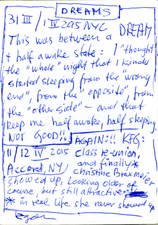 DREAMS
31 III / 1 IV 2015 NYC DREAM
This was between a
+ half awake state: I "thought"
the "whole" night that I kinda
started sleeping from the "wrong
end", from the "opposite", from
the "other side" – and that
keep me half awake, half sleeping
NOT GOOD!!
AGAIN!!! KFG:
11/12 IV 2015
class reunion,
Accord, NY)
and finally*
Christine
showed up, looking older of
course, but still attractive.
* in real life she never showed up